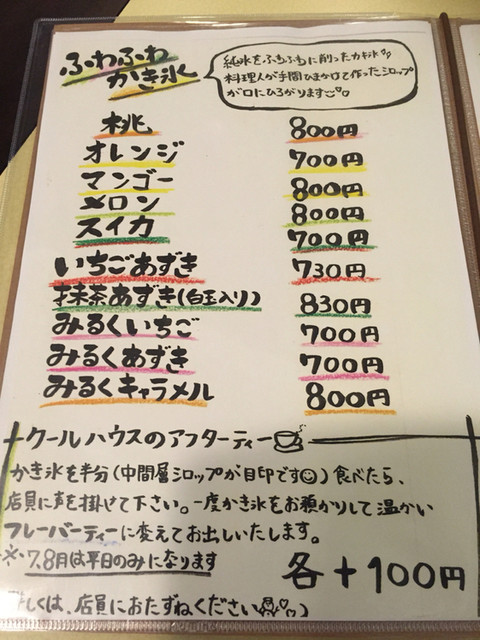 ふわふわ
かき氷
純氷をふわふわに削ったカキ氷
料理人が手間ひまかけて作ったシロップ
が口にひろがります
桃 800円
オレンジ 700円
マンゴー 800円
メロン 800円
スイカ 700円
いちごあずき 730円
抹茶あずき(白玉入り) 830円
みるくいちご 700円
みるくあずき 700円
みるくキャラメル 800円
クールハウスのアフターティー
かき氷を半分(中間層シロップが目印です)食べたら、
店員に声を掛けて下さい。一度かき氷をお預かりして温かい
フレーバーティーに変えてお出しいたします。
※7.8月は平日のみになります
各+100円
しくは、店員におたずねください )